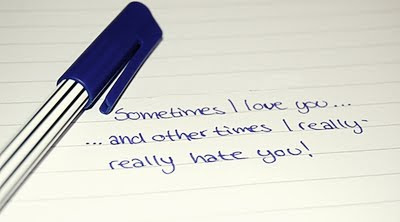 Sometimes I love you...
...and other times I really-
really hate you!